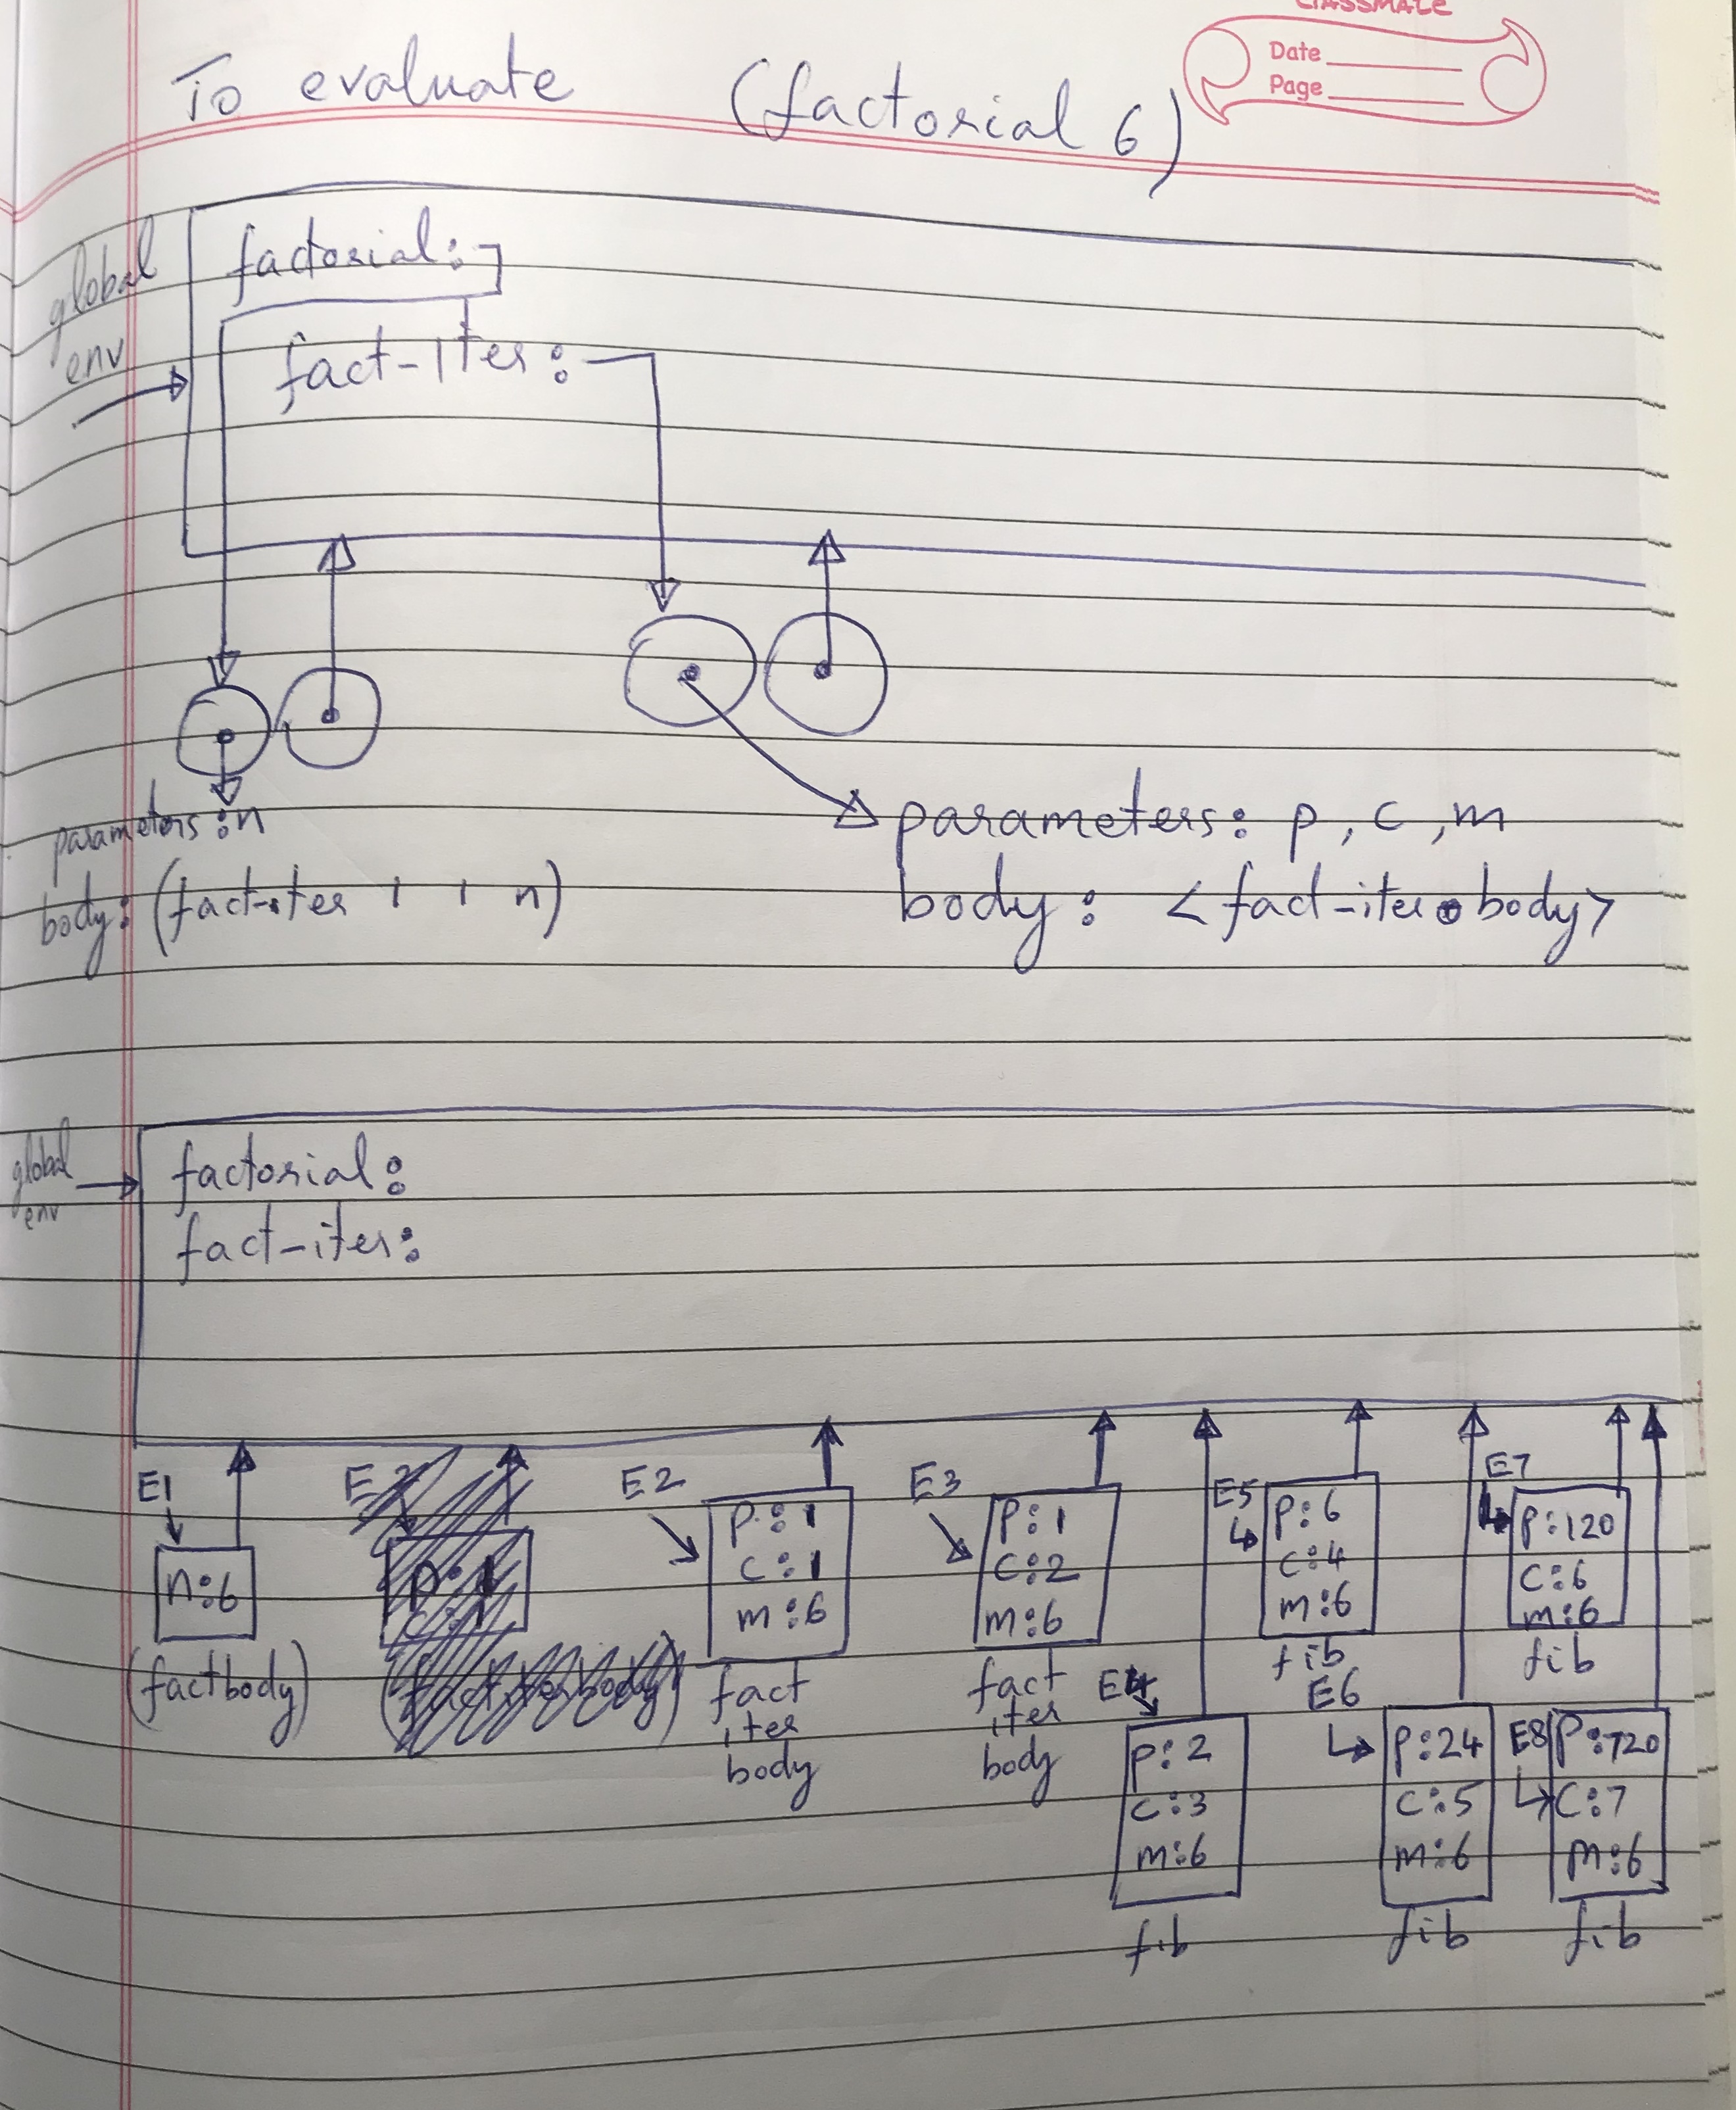 classmate
Date
Page
To evaluate (factorial 6)
global
env
factorial:
fact-iter:
parameters: n
body: (fact-iter 1 1 n)
parameters: p, c, m
body: <fact-iter body>
global
env
factorial:
fact-iter:
E1
n:6
(factbody)
E2
p:1
c:1
m:6
fact
iter
body
E3
p:1
c:2
m:6
fact
iter
body
E4
p:2
c:3
m:6
fib
E5
p:6
c:4
m:6
fib
E6
p:24
c:5
m:6
fib
E7
p:120
c:6
m:6
fib
E8
p:720
c:7
m:6
fib